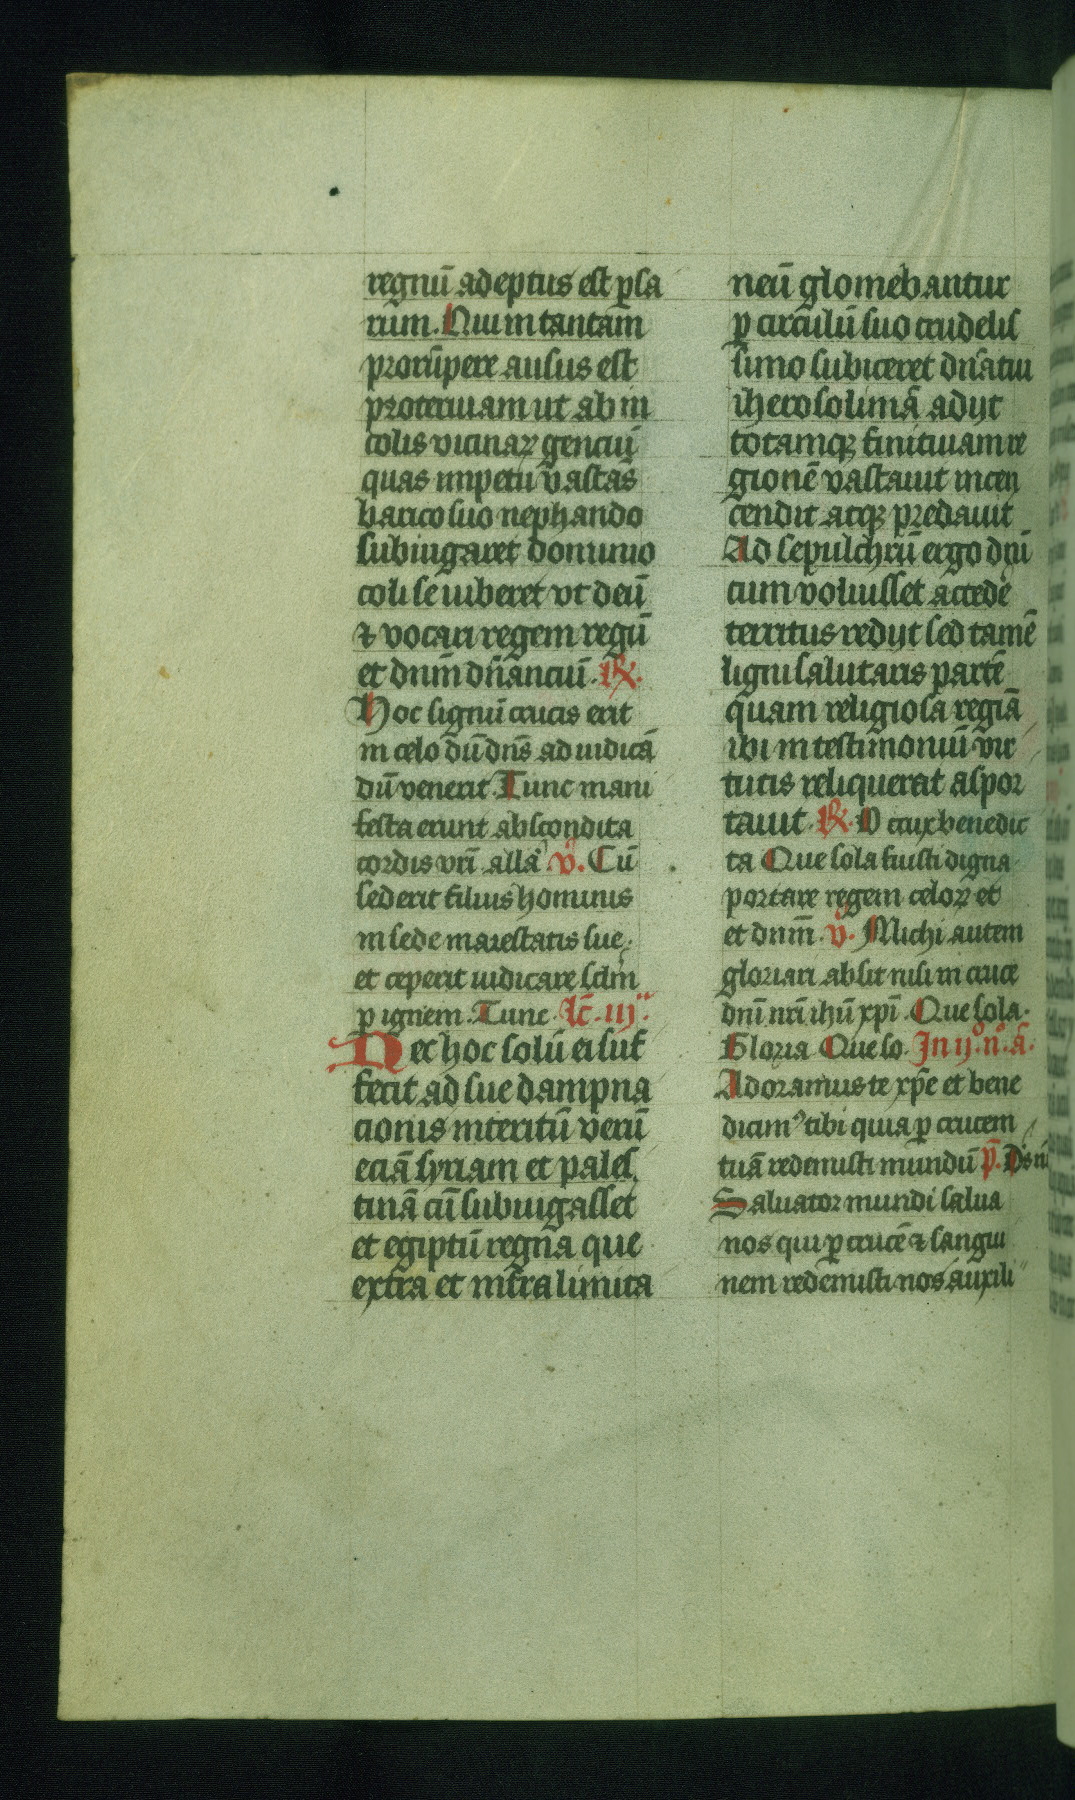 regnū adeptus est ꝑsa
rum. Qui in tantam
prorūpere ausus est
proteruiam ut ab in
colis vicinaꝝ genciū
quas impetu vastās
barico suo nephando
subiugaret dominio
coli se iuberet vt deū
⁊ vocari regem regū
et dnm dn̄anciū. ℞.
Hoc signū crucis erit
in celo dū dn̄s ad iudicā
dū venerit. Tunc mani
festa erunt abscondita
cordis vr̄i alla ℣. Cū
sederit filius hominis
in sede maiestatis sue.
et ceperit iudicare sclm̄
ꝑ ignem. Tunc. Lc̄. iij.
Nec hoc solū ei suf
fecit ad sue dampna
cionis interitū verū
eciā syriam et pales
tinā cū subiugasset
et egiptū regna que
extra et intra limita
neū glomebantur
ꝑ circulū suo crudelis
simo subiceret dn̄atui
iherosolimā adijt
totamqꝫ finitiuam re
gionē vastauit incen
cendit atqꝫ predauit
Ad sepulchrū ergo dnī
cum voluisset accede
territus redijt sed tamē
ligni salutaris partē
quam religiosa regiā
ibi in testimoniū vir
tutis reliquerat aspor
tauit. ℞. O crux benedic
ta Que sola fuisti digna
portare regem celoꝝ et
et dnm̄. ℣. Michi autem
gloriari absit nisi in cruce
dnī nr̄i ihū xp̄i. Que sola.
Gloria Que so. In ij. n. a.
Adoramus te xp̄e et bene
dicimꝰ tibi quia ꝑ crucem
tuā redemisti mundū p̄. Ds n̄
Saluator mundi salua
nos qui ꝑ crucē ⁊ sangui
nem redemisti nos auxili